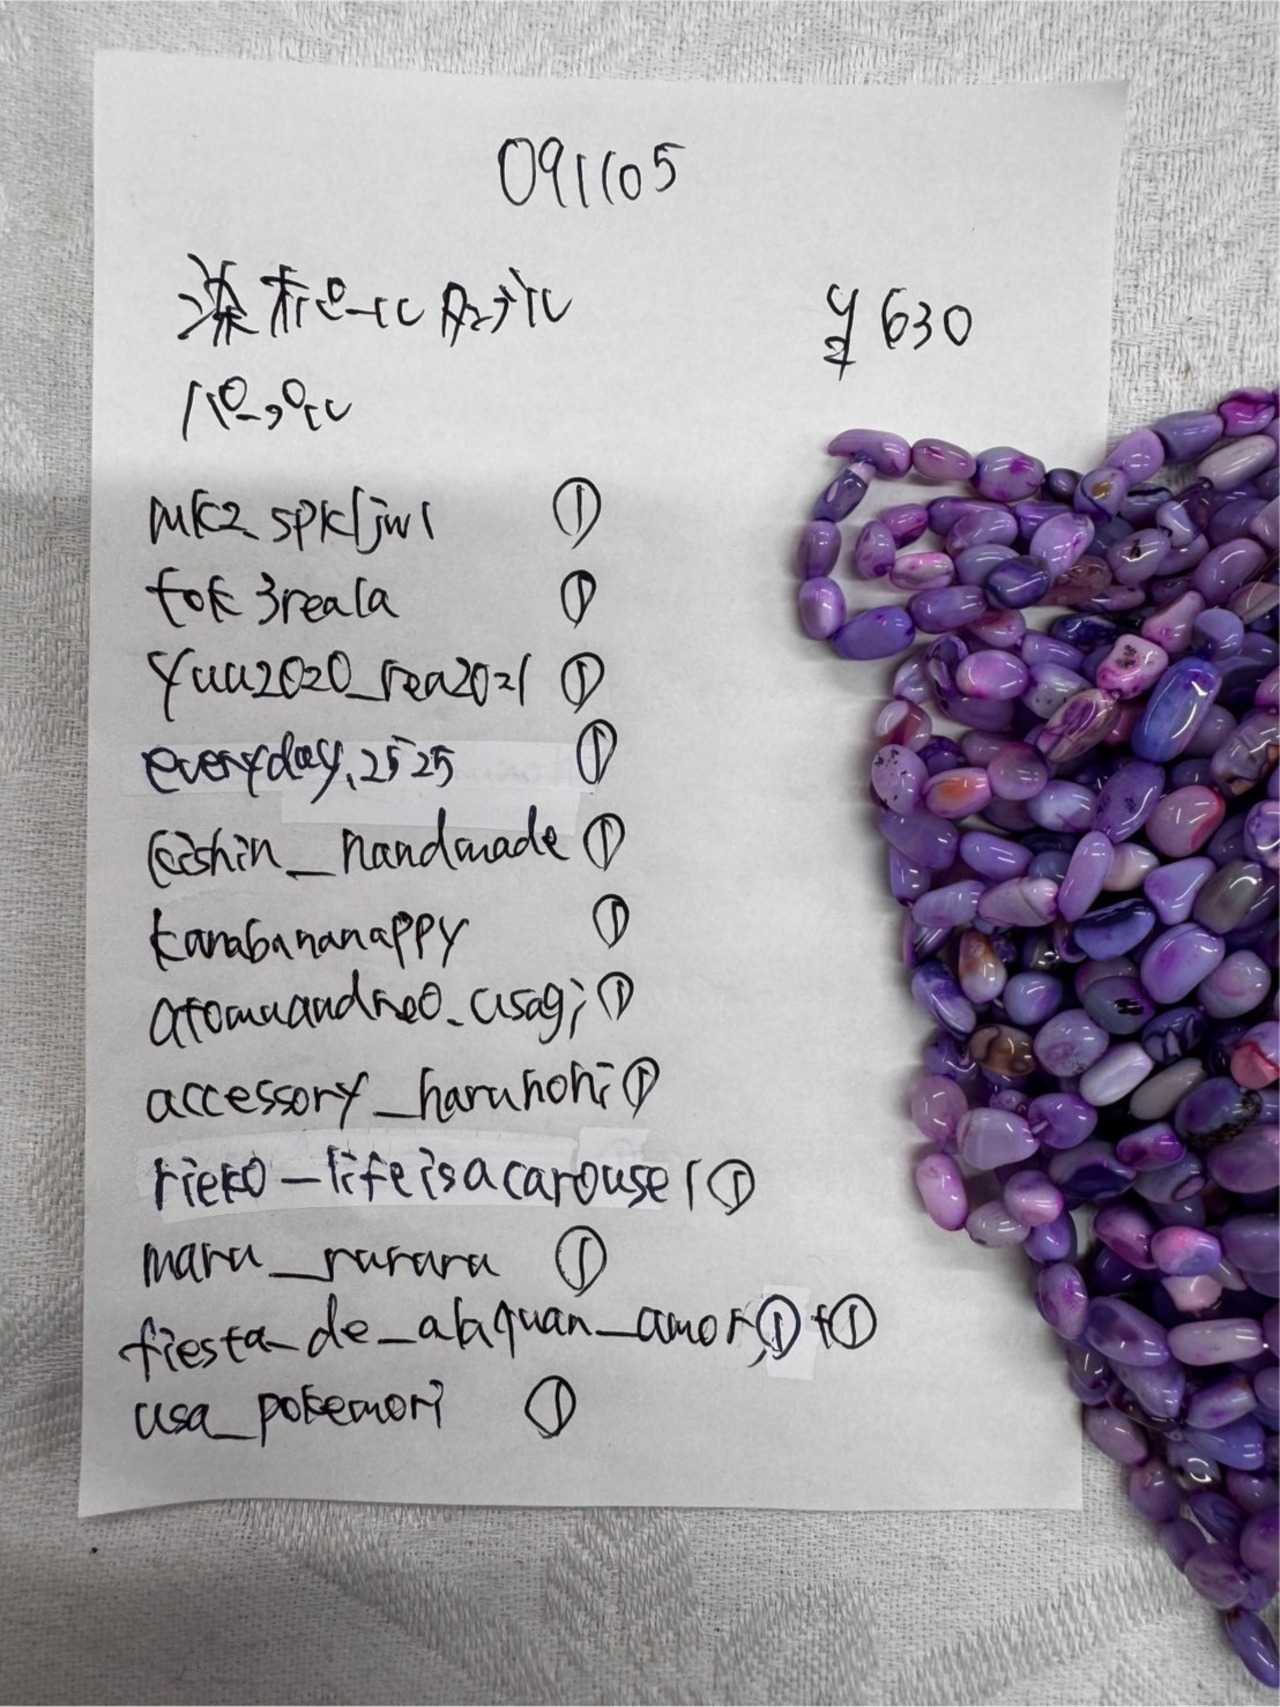 091105
染 ¥630
mk2_spkljwl ①
tok3reala ①
yuu2020_rea2021 ①
everyday.2525 ①
keishin_handmade ①
kanabananappy ①
atomuandreo_usagi ①
accessory_haruhohi ①
rieko_lifeisacarousel ①
maru_rurara ①
fiesta_de_alaquan_amor ① + ①
usa_pokemori ①